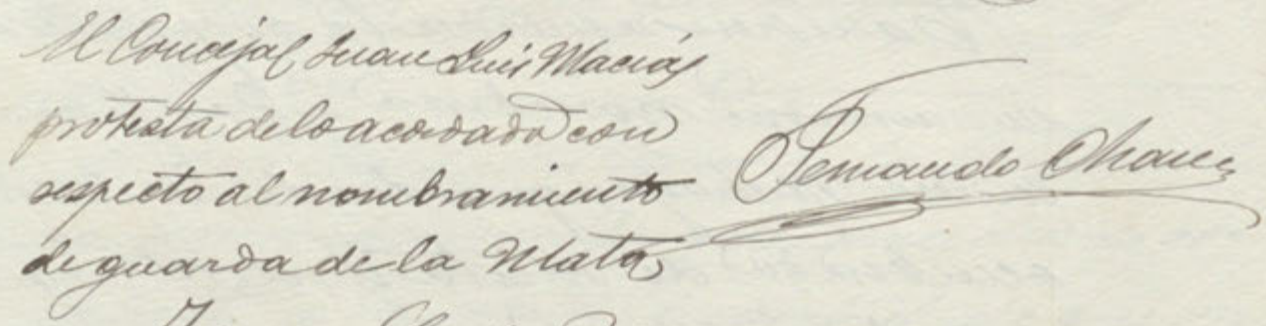 El Concejal Juan Luis Macías
protesta de lo acordado con
respecto al nombramiento
de guarda de la Mata
Fernando